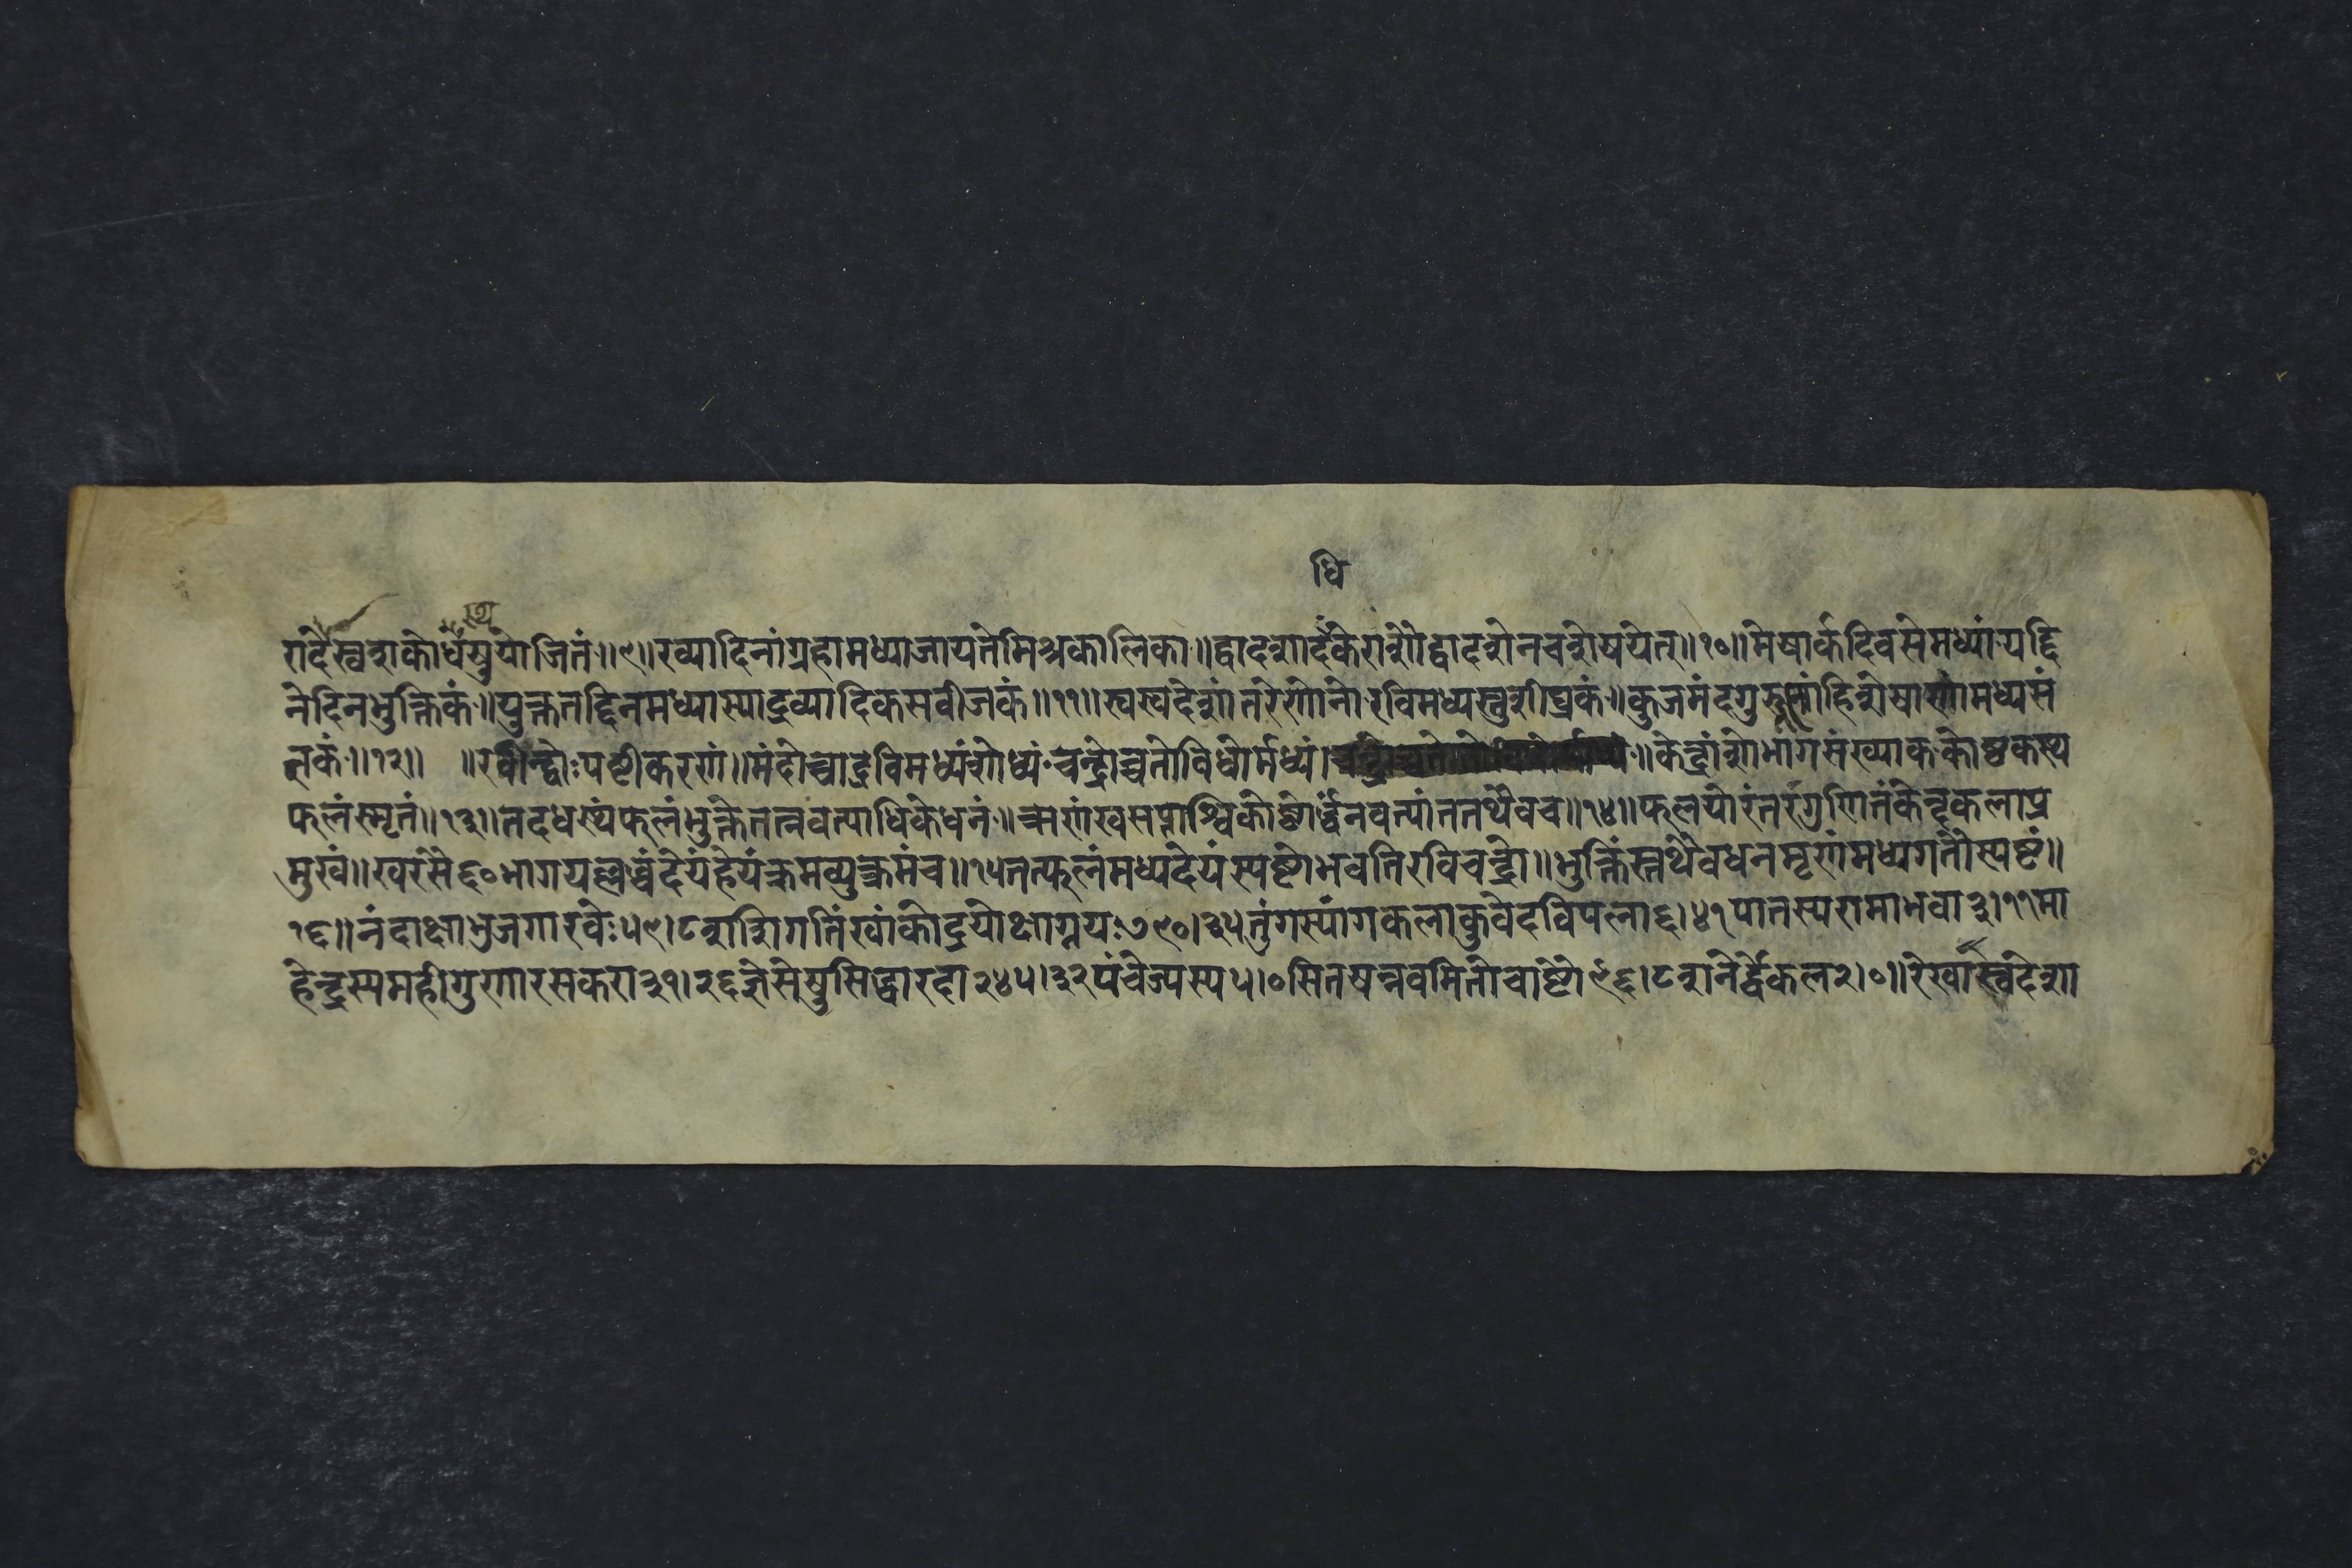 धि
थ
रादैस्वशकोर्धैयुयोजितं॥९॥रव्यादिनांग्रहामध्याजायतेमिश्रकालिका॥द्वादशार्दैकेराशौद्वादशेनचशेषयेत्॥१०॥मेषार्कदिवसेमध्यांयद्दि
नेदिनभुक्तिकं॥युक्ततद्दिनमध्यास्याद्रव्यादिकसबीजकं॥११॥स्वस्वदेशांतरेणोनोरविमध्यस्तुशीघ्रकं॥कुजमंदगुरूणांहिशेषाणांमध्यसं
ज्ञकं॥१२॥ ॥रवीन्द्वोःपष्टीकरणं॥मंदोच्चाद्रविमध्यंशोध्यंचन्द्रोच्चतोविधोर्मध्यं।॥केन्द्रांशोभागसंख्याककोष्ठकस्य
फलंस्मृतं॥१३॥तदधस्थंफलंभुक्तेतत्नवत्याधिकेधनं॥ऋणंखसप्ताश्विकोष्टोर्द्धनवत्यांततथैवच॥१४॥फलयोरंतरंगुणितंकेन्द्रकलाप्र
मुखं॥खरसै६०भागयल्लब्धंदेयंहेयंक्रमव्युक्रमंच॥१५तत्फलंमध्यदेयंस्पष्टोभवतिरविचन्द्रो॥भुक्तिस्तथैवधनमृणंमध्यगतोस्पष्टं॥
१६॥नंदाक्षाभुजगारवेः५९।८शशिगतिखांकोद्रयोक्षाग्नयः७९०।३५तुंगस्यांगकलाकुवेदविपला६।४१पातस्यरामाभवा३।११मा
हेन्द्रस्यमहीगुणारसकरा३१।२६ज्ञेसेषुसिद्धारदा२४५।३२पंचेज्यस्य५।०सितषन्नवमितोचाष्टो९६।८शनेर्द्वेकल२।०॥रेखास्वदेशा